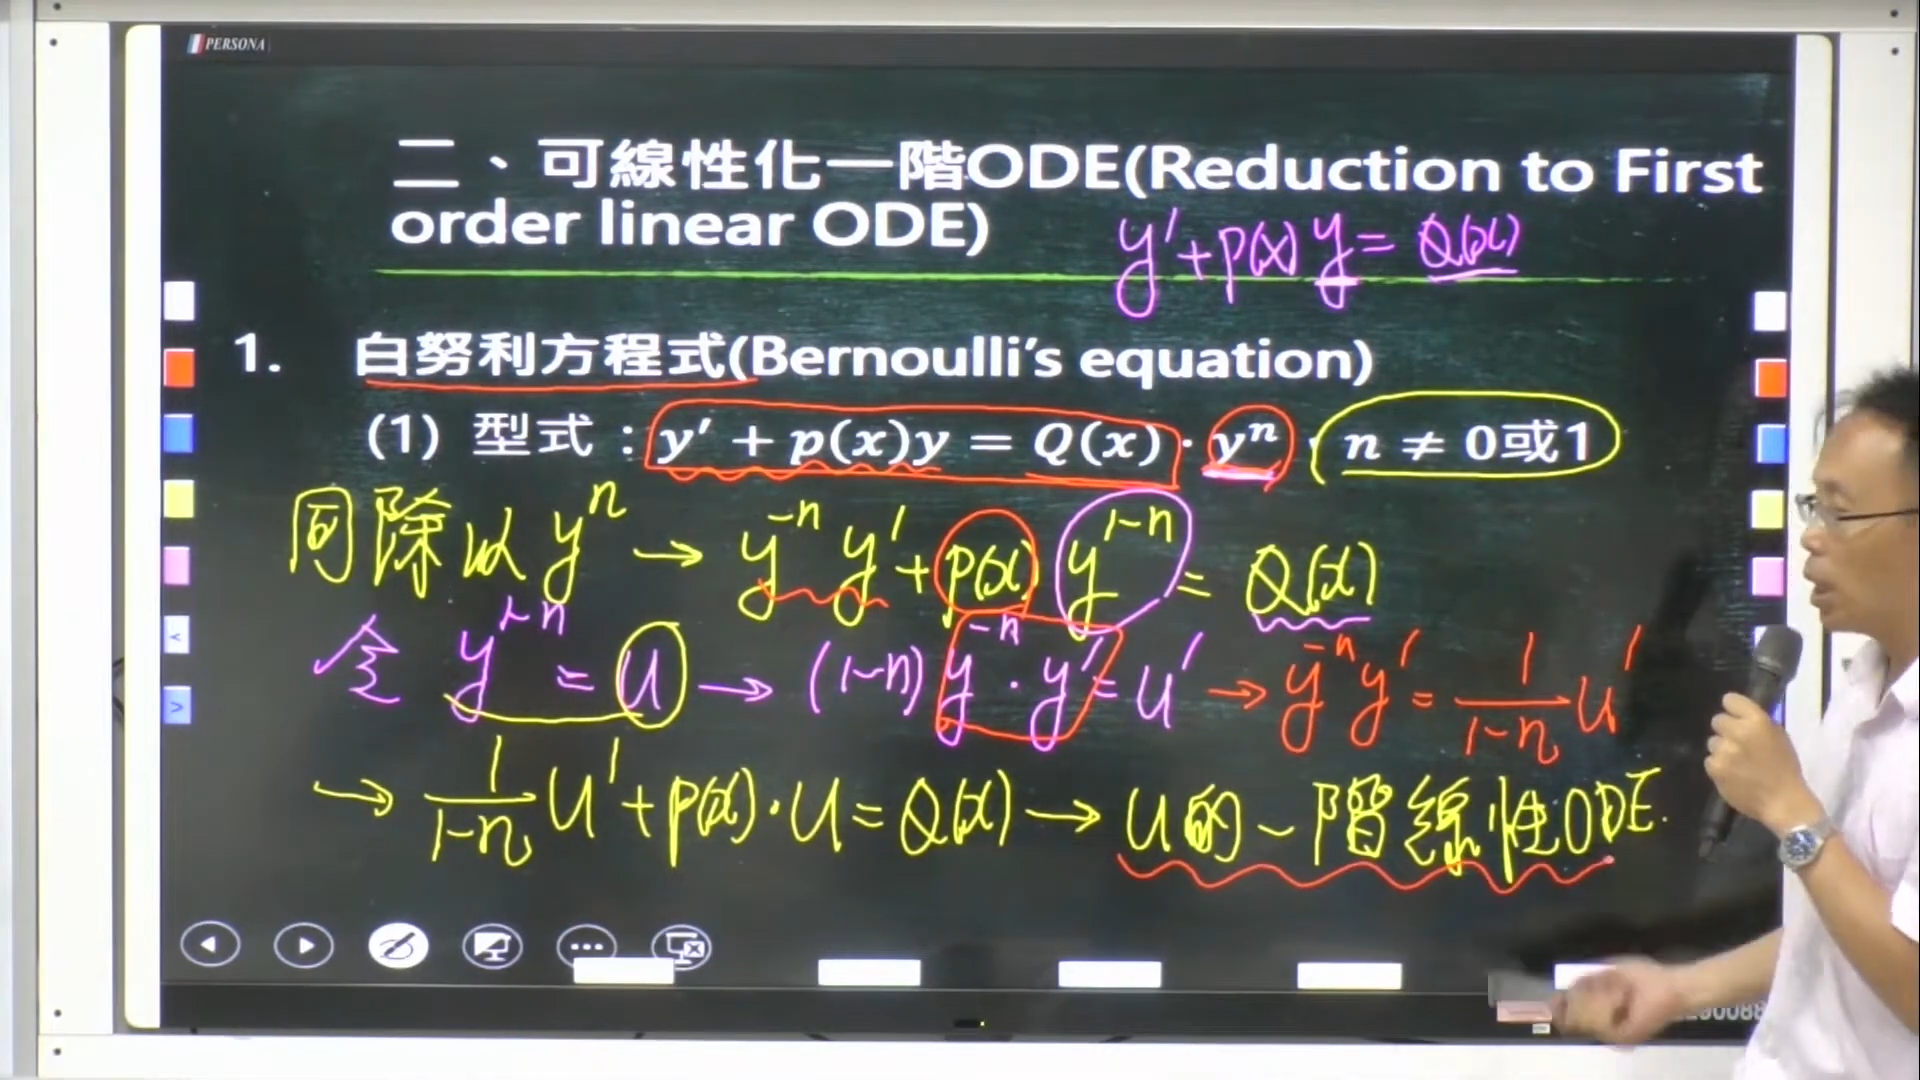 PERSONA
二、可線性化一階ODE(Reduction to First
order linear ODE)
y′+p(x)y=Q(x)
1. 白努利方程式(Bernoulli’s equation)
(1) 型式：y′ + p(x)y = Q(x)·yⁿ, n ≠ 0或1
同除以 yⁿ → y⁻ⁿ y′ + p(x) y¹⁻ⁿ = Q(x)
令 y¹⁻ⁿ = u → (1-n) y⁻ⁿ · y′ = u′ → y⁻ⁿ y′ = 1/(1-n) u′
→ 1/(1-n) u′ + p(x)·u = Q(x) → u的一階線性ODE.